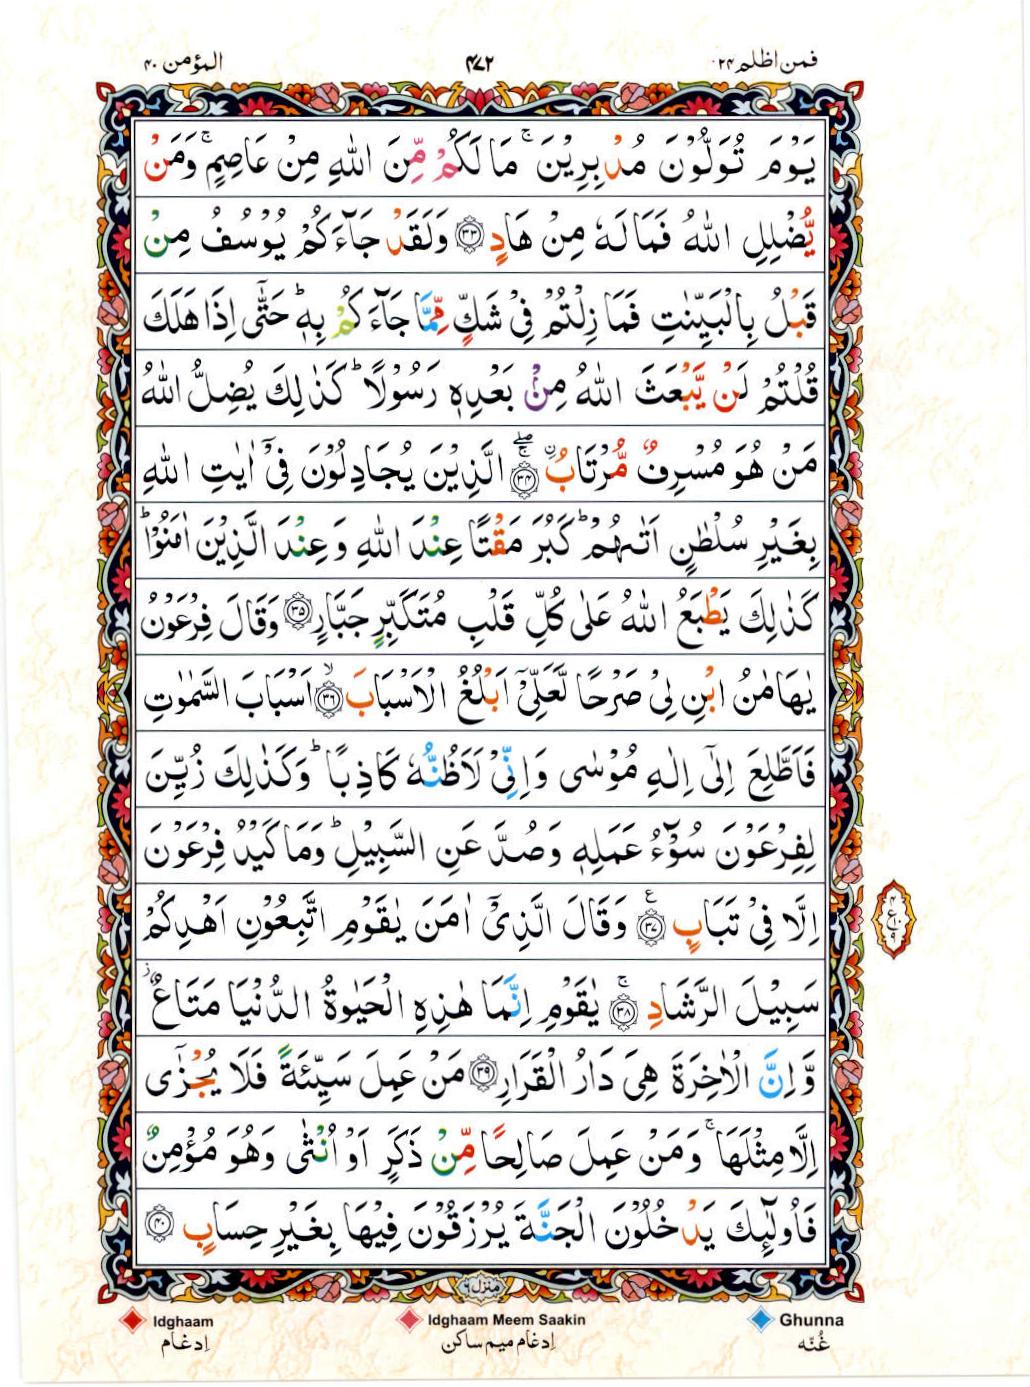 فمن اظلم ۲۴
۴۷۲
المؤمن ۴۰
يَوْمَ تُوَلُّوْنَ مُدْبِرِيْنَ ۚ مَا لَكُمْ مِّنَ اللّٰهِ مِنْ عَاصِمٍ ۚ وَمَنْ
يُّضْلِلِ اللّٰهُ فَمَا لَهٗ مِنْ هَادٍ ﴿۳۳﴾ وَلَقَدْ جَآءَكُمْ يُوْسُفُ مِنْ
قَبْلُ بِالْبَيِّنٰتِ فَمَا زِلْتُمْ فِيْ شَكٍّ مِّمَّا جَآءَكُمْ بِهٖ ؕ حَتّٰۤى اِذَا هَلَكَ
قُلْتُمْ لَنْ يَّبْعَثَ اللّٰهُ مِنْۢ بَعْدِهٖ رَسُوْلًا ؕ كَذٰلِكَ يُضِلُّ اللّٰهُ
مَنْ هُوَ مُسْرِفٌ مُّرْتَابُ ۨ ﴿۳۴﴾ ۚۖ الَّذِيْنَ يُجَادِلُوْنَ فِيْۤ اٰيٰتِ اللّٰهِ
بِغَيْرِ سُلْطٰنٍ اَتٰىهُمْ ؕ كَبُرَ مَقْتًا عِنْدَ اللّٰهِ وَعِنْدَ الَّذِيْنَ اٰمَنُوْا ؕ
كَذٰلِكَ يَطْبَعُ اللّٰهُ عَلٰى كُلِّ قَلْبِ مُتَكَبِّرٍ جَبَّارٍ ﴿۳۵﴾ وَقَالَ فِرْعَوْنُ
يٰهَامٰنُ ابْنِ لِيْ صَرْحًا لَّعَلِّيْۤ اَبْلُغُ الْاَسْبَابَ ۙ ﴿۳۶﴾ اَسْبَابَ السَّمٰوٰتِ
فَاَطَّلِعَ اِلٰۤى اِلٰهِ مُوْسٰى وَاِنِّيْ لَاَظُنُّهٗ كَاذِبًا ؕ وَكَذٰلِكَ زُيِّنَ
لِفِرْعَوْنَ سُوْٓءُ عَمَلِهٖ وَصُدَّ عَنِ السَّبِيْلِ ؕ وَمَا كَيْدُ فِرْعَوْنَ
اِلَّا فِيْ تَبَابٍ ﴿۳۷﴾ ع وَقَالَ الَّذِيْۤ اٰمَنَ يٰقَوْمِ اتَّبِعُوْنِ اَهْدِكُمْ
سَبِيْلَ الرَّشَادِ ۚ ﴿۳۸﴾ يٰقَوْمِ اِنَّمَا هٰذِهِ الْحَيٰوةُ الدُّنْيَا مَتَاعٌ ز
وَّاِنَّ الْاٰخِرَةَ هِيَ دَارُ الْقَرَارِ ﴿۳۹﴾ مَنْ عَمِلَ سَيِّئَةً فَلَا يُجْزٰۤى
اِلَّا مِثْلَهَا ۚ وَمَنْ عَمِلَ صَالِحًا مِّنْ ذَكَرٍ اَوْ اُنْثٰى وَهُوَ مُؤْمِنٌ
فَاُولٰٓئِكَ يَدْخُلُوْنَ الْجَنَّةَ يُرْزَقُوْنَ فِيْهَا بِغَيْرِ حِسَابٍ ﴿۴۰﴾
منزل ۶
Idghaam
Idghaam Meem Saakin
Ghunna
اِدغام
اِدغام میم ساکن
غُنّه